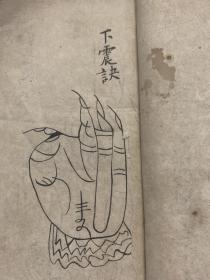 下震訣